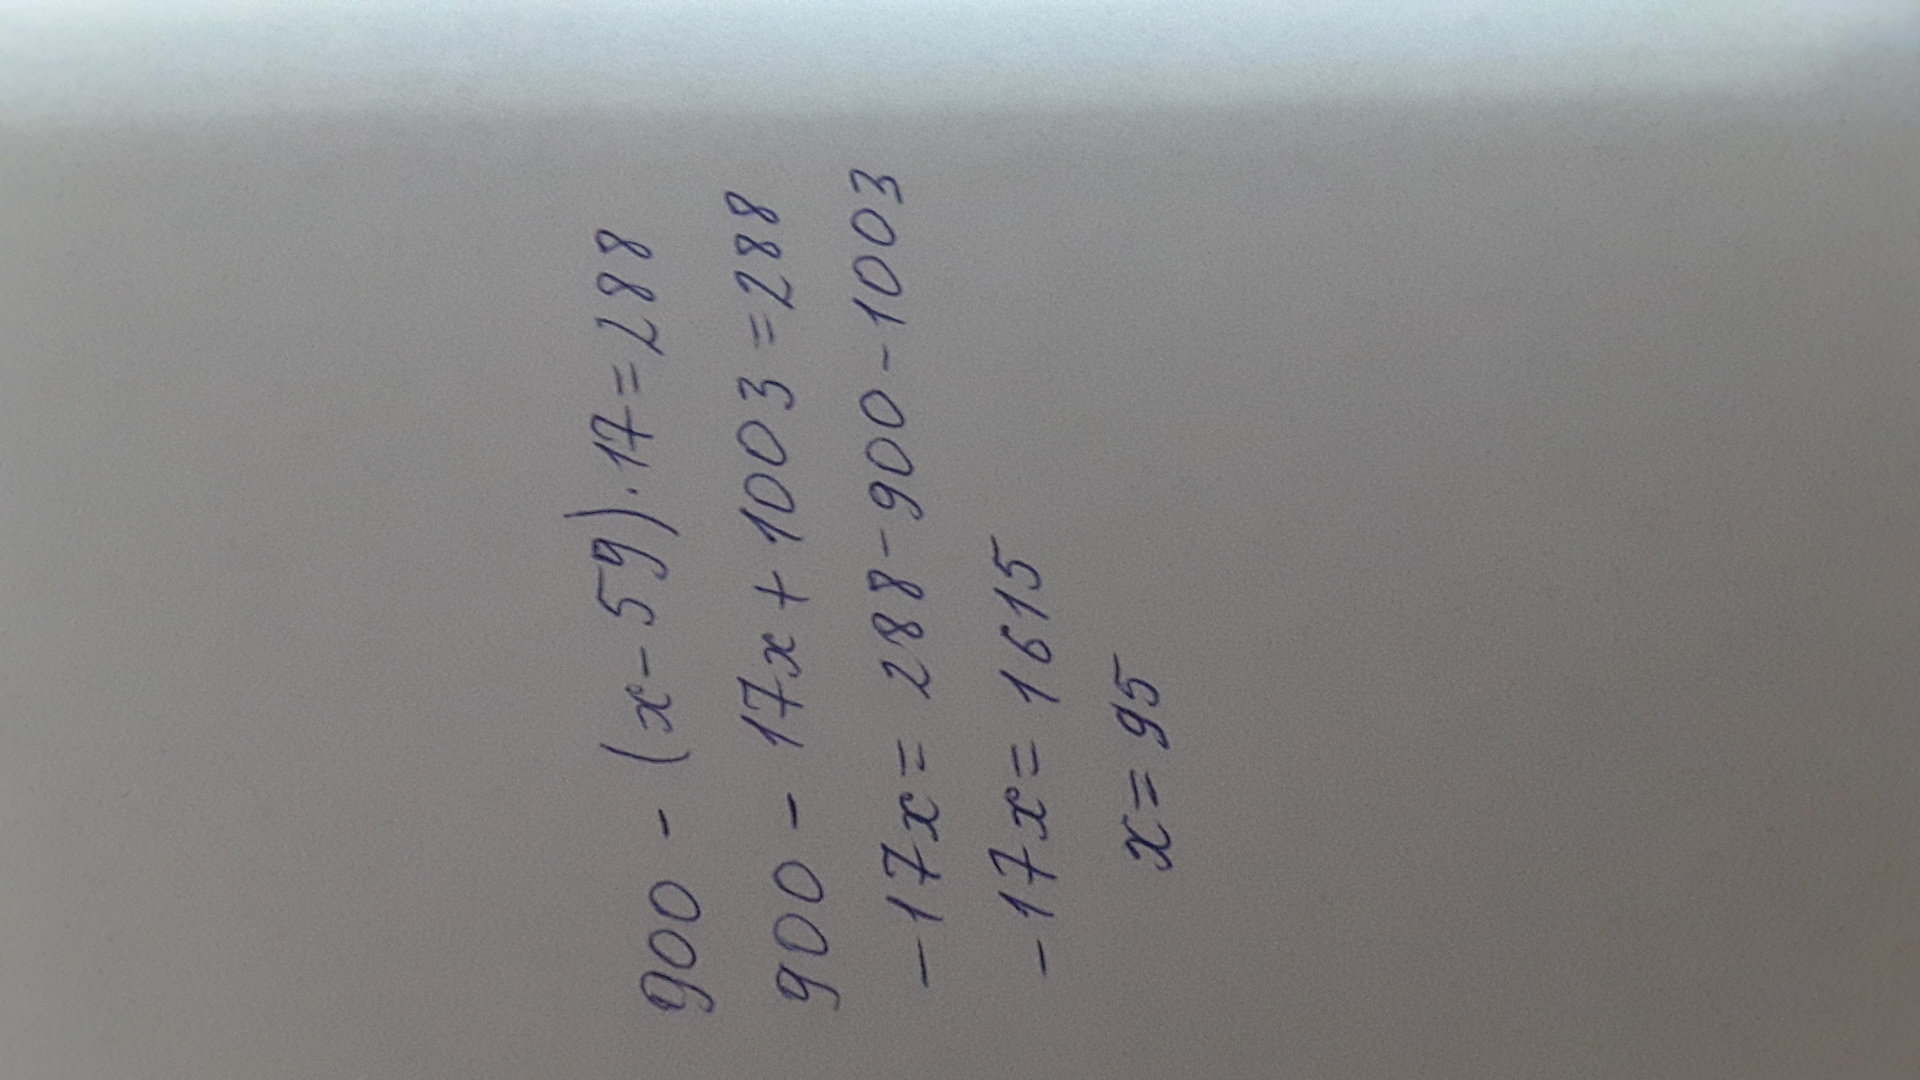 900 - (x-59)·17=288
900 - 17x+1003=288
-17x= 288-900-1003
-17x= 1615
x=95